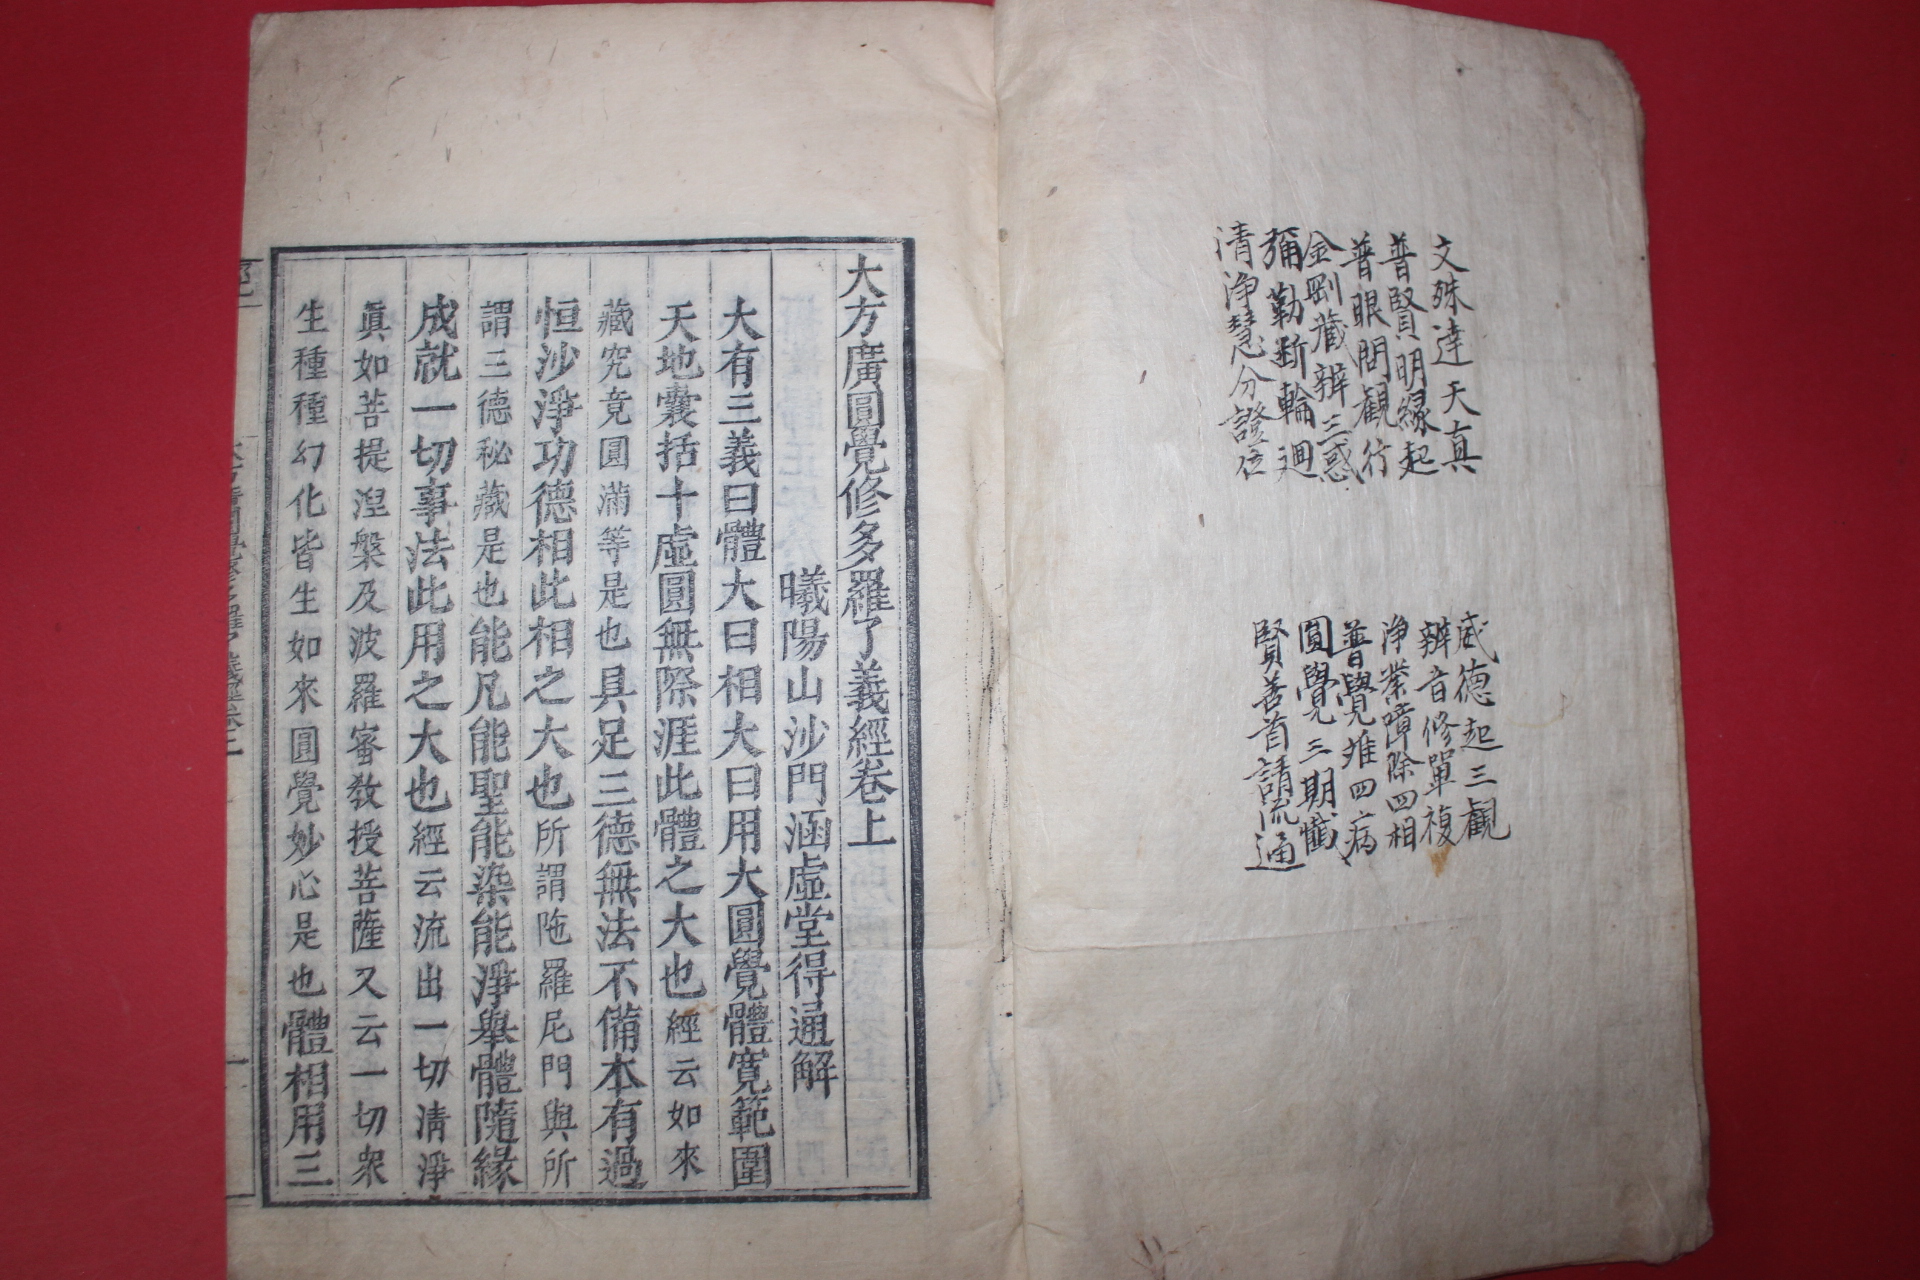 文殊達天真
普賢明緣起
普眼問觀行
金剛藏辨三惑
彌勒斷輪迴
清淨慧分證位
威德起三觀
辨音修單複
淨業障除四相
普覺难四病
圓覺三期懺
賢善首請流通
大方廣圓覺修多羅了義經卷上
曦陽山沙門涵虛堂得通解
大有三義曰體大曰相大曰用大圓覺體寬範圍
天地囊括十虛圓無際涯此體之大也經云如來
藏究竟圓滿等是也具足三德無法不備本有過
恒沙淨功德相此相之大也所謂陁羅尼門與所
謂三德秘藏是也能凡能聖能染能淨舉體隨緣
成就一切事法此用之大也經云流出一切清淨
眞如菩提涅槃及波羅蜜敎授菩薩又云一切衆
生種種幻化皆生如來圓覺妙心是也體相用三